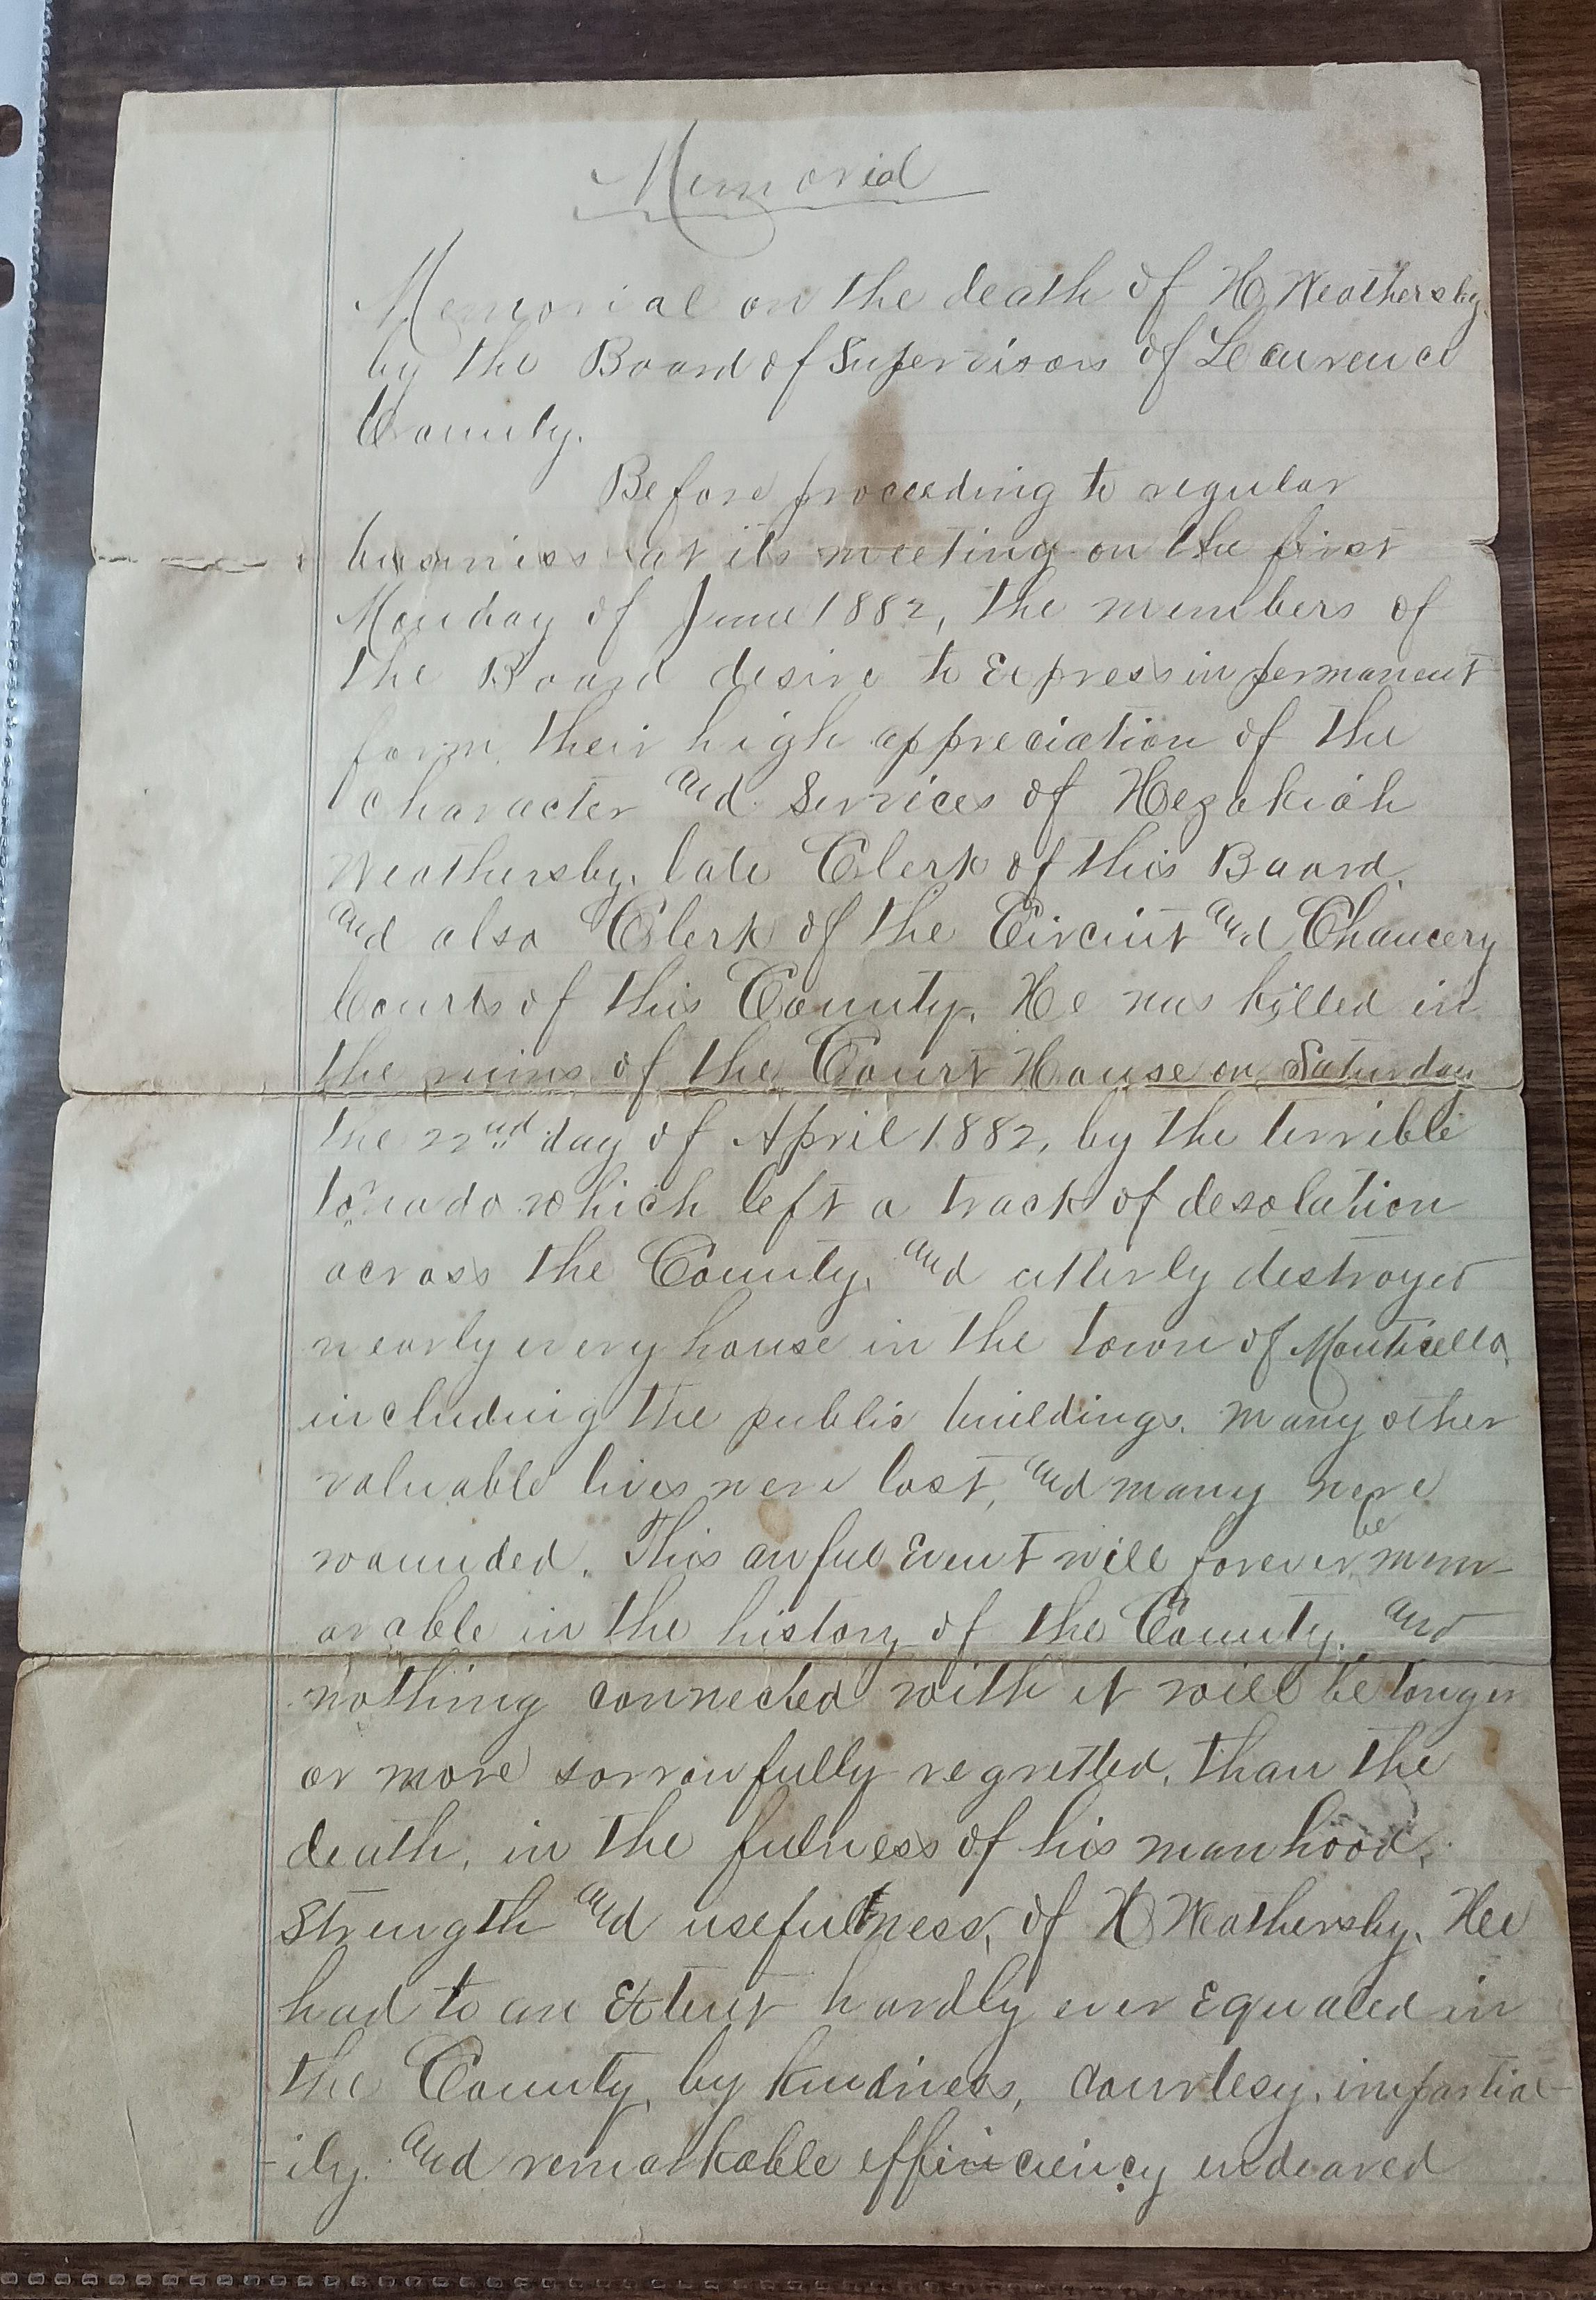 Memorial
Memorial on the death of H. Weathersby,
by the Board of Supervisors of Lawrence
County.
Before proceeding to regular
business at its meeting on the first
Monday of June 1882, the members of
the Board desire to Express in permanent
form, their high appreciation of the
character and Services of Hezakiah
Weathersby, late Clerk of this Board,
and also Clerk of the Circuit and Chancery
Courts of this County. He was killed in
the ruins of the Court House on Saturday
the 22nd day of April 1882, by the terrible
tornado which left a track of desolation
across the County, and utterly destroyed
nearly every house in the town of Monticello,
including the public buildings. Many other
valuable lives were lost, and many were
wounded. This awful Event will forever be mem-
orable in the history of the County, and
nothing connected with it will be longer
or more sorrowfully regretted, than the
death, in the fulness of his manhood,
Strength and usefulness, of H Weathersby. Hee
had to an Extent hardly ever Equaled in
the County, by kindness, courtesy, impartial-
-ily, and remarkable efficiency endeared